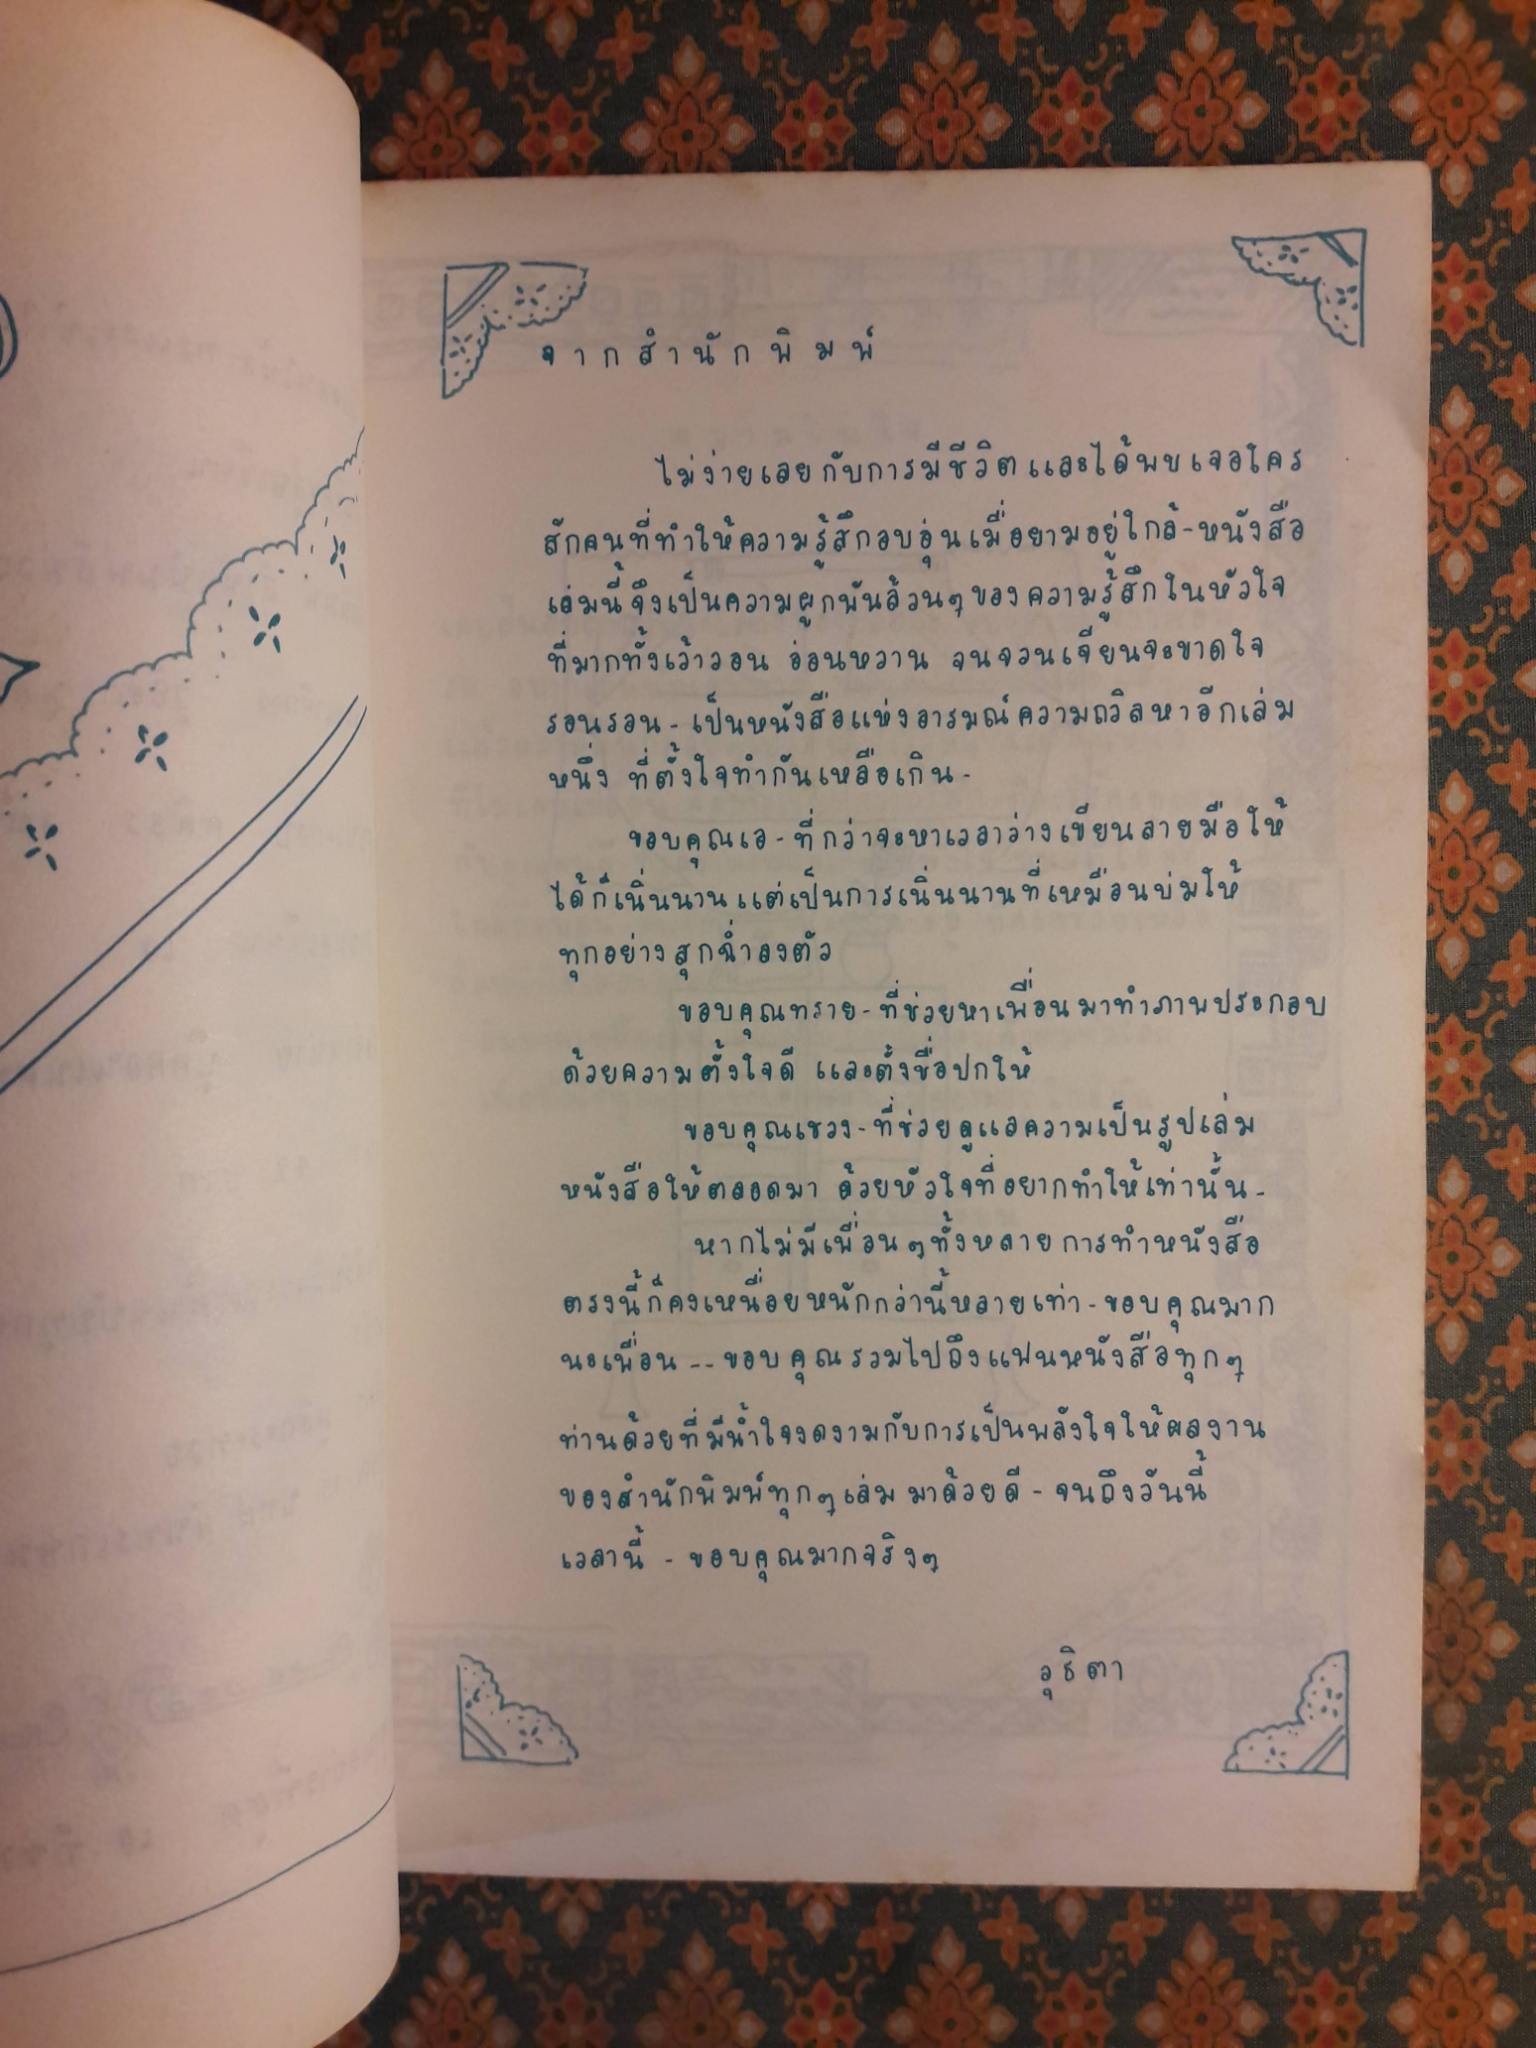 จากสำนักพิมพ์
ไม่ง่ายเลยกับการมีชีวิตและได้พบเจอใคร
สักคนที่ทำให้ความรู้สึกอบอุ่นเมื่อยามอยู่ใกล้-หนังสือ
เล่มนี้จึงเป็นความผูกพันล้วนๆของความรู้สึกในหัวใจ
ที่มากทั้งเว้าวอน อ่อนหวาน จนจวนเจียนจะขาดใจ
รอนรอน-เป็นหนังสือแห่งอารมณ์ความถวิลหาอีกเล่ม
หนึ่ง ที่ตั้งใจทำกันเหลือเกิน-
ขอบคุณเอ-ที่กว่าจะหาเวลาว่างเขียนลายมือให้
ได้ก็เนิ่นนานแต่เป็นการเนิ่นนานที่เหมือนบ่มให้
ทุกอย่างสุกฉ่ำลงตัว
ขอบคุณทราย-ที่ช่วยหาเพื่อนมาทำภาพประกอบ
ด้วยความตั้งใจดี และตั้งชื่อปกให้
ขอบคุณเชวง-ที่ช่วยดูแลความเป็นรูปเล่ม
หนังสือให้ตลอดมา ด้วยหัวใจที่อยากทำให้เท่านั้น-
หากไม่มีเพื่อนๆทั้งหลายการทำหนังสือ
ตรงนี้ก็คงเหนื่อยหนักกว่านี้หลายเท่า-ขอบคุณมาก
นะเพื่อน--ขอบคุณรวมไปถึงแฟนหนังสือทุกๆ
ท่านด้วยที่มีน้ำใจงดงามกับการเป็นพลังใจให้ผลงาน
ของสำนักพิมพ์ทุกๆเล่มมาด้วยดี-จนถึงวันนี้
เวลานี้ -ขอบคุณมากจริงๆ
วุธิตา